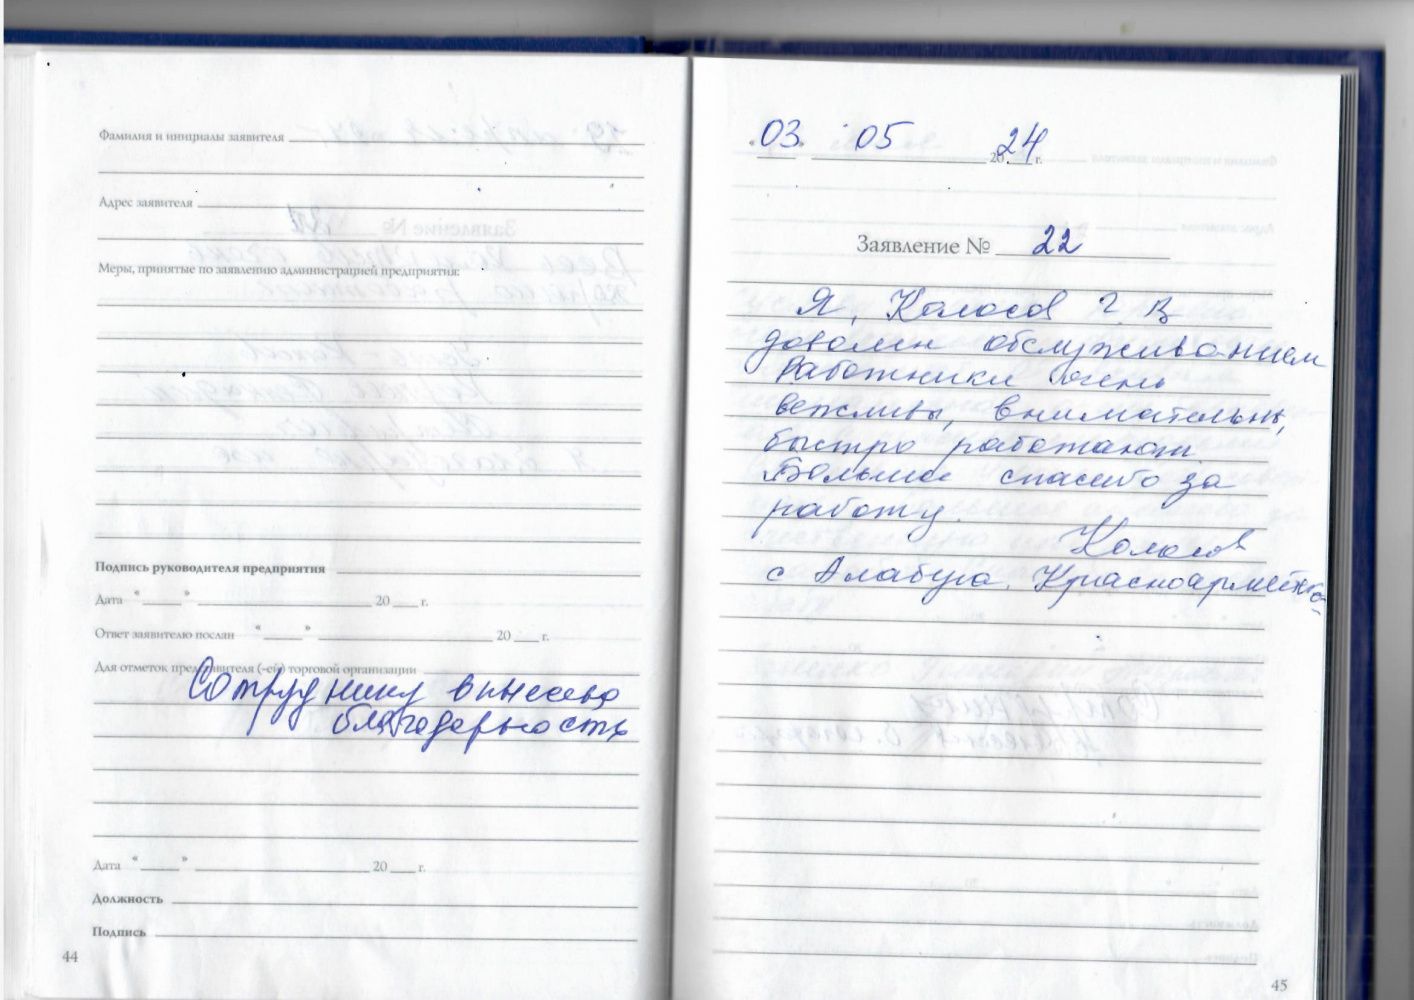 Фамилия и инициалы заявителя
Адрес заявителя
Меры, принятые по заявлению администрацией предприятия:
Подпись руководителя предприятия
Дата "___" ___ 20 ___ г.
Ответ заявителю послан "___" ___ 20 ___ г.
Для отметок представителя (-ей) торговой организации
Сотруднику вынесена
благодарность
Дата "___" ___ 20 ___ г.
Должность
Подпись
44
"03" 05 2024 г.
Заявление № 22
Я, Колосов Г В
доволен обслуживанием
Работники очень
вежливы, внимательны,
быстро работают
Большое спасибо за
работу.
Колосов
с Алабуга. Красноармейска-
45